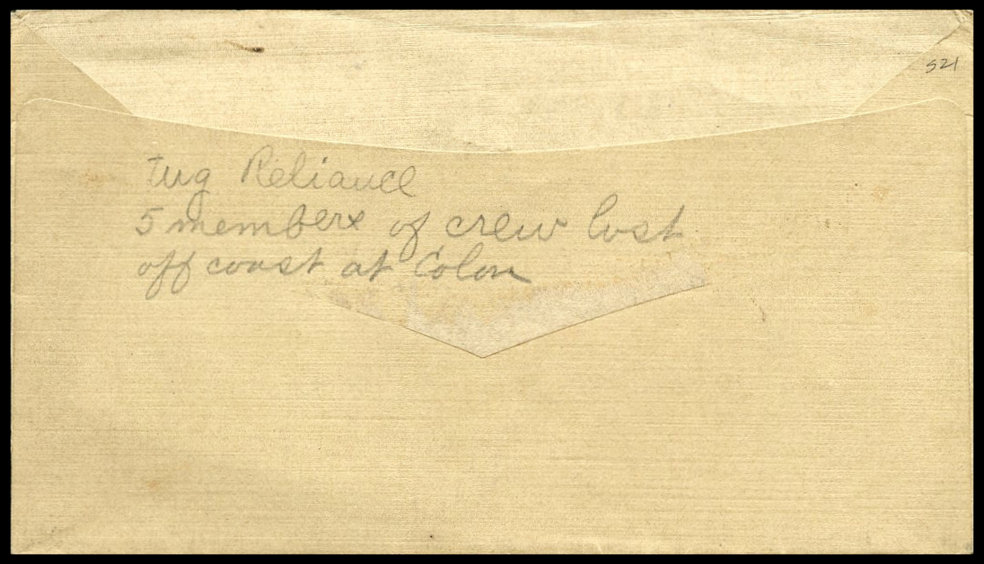 521
tug Reliance
5 members of crew lost
off coast at Colon